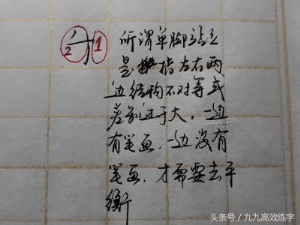 2 1
所谓单脚站立
是指左右两
边结构不对等或
差别过于大,一边
有笔画,一边没有
笔画,才需要去平
衡
头条号/九九高效练字